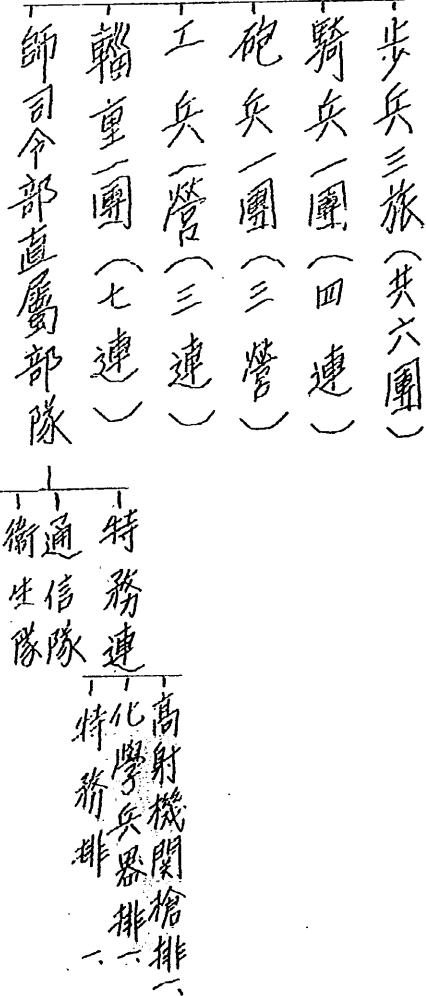 步兵三旅(共六團)
騎兵一團(四連)
砲兵一團(三營)
工兵一營(三連)
輜重一團(七連)
師司令部直屬部隊
特務連
通信隊
衛生隊
高射機関槍排一、
化學兵器排一、
特務排一、